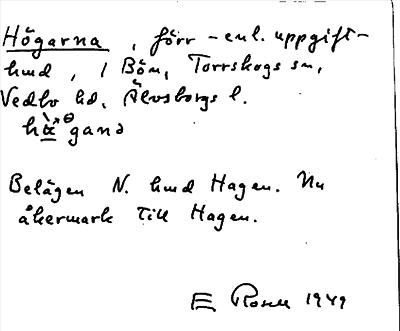 Högarna, förr – enl. uppgift –
hmd, i Bön, Torrskogs sn,
Vedbo hd, Älvsborgs l.
gana
Belägen N. hmd Hagen. Nu
åkermark till Hagen.
E Rosell 1949